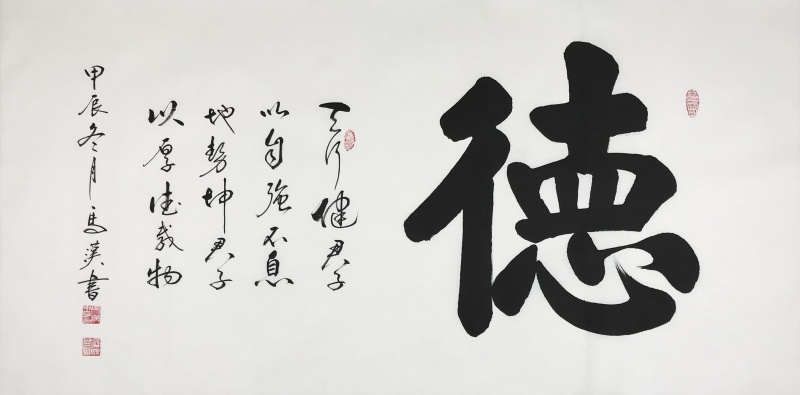 德
天行健君子
以自強不息
地勢坤君子
以厚德載物
甲辰冬月馬漢書